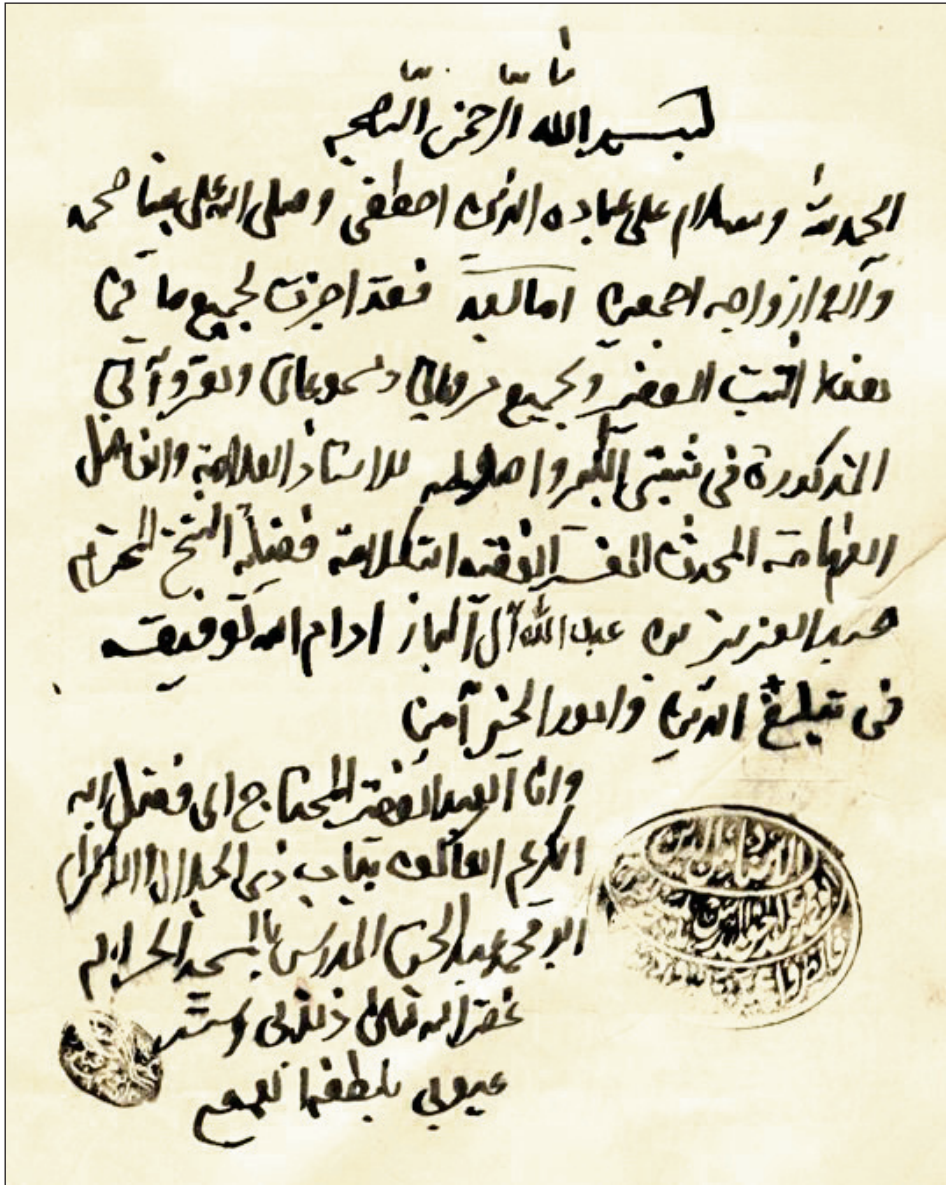 بسم الله الرحمن الرحيم
الحمد لله وسلام على عباده الذين اصطفى وصلى الله على نبينا محمد
وآله وازواجه اجمعين اما بعد فقد اجزت لجميع ما في
هذا الثبت الصغير وبجميع مروياتي ومسموعاتي ومقروآتي
المذكورة في ثبتي الكبير للاستاذ العلامة والفاضل
الفهامة المحدث المفسر الفقيه فضيلة الشيخ المحترم
عبد العزيز بن عبد الله آل الباز ادام الله توفيقه
في تبليغ الدين وامور الخير آمين
وانا العبد الفقير المحتاج الى فضل الله
الكريم العاكف بباب ذي الجلال والاكرام
ابو محمد عبد الحق المدرس بالمسجد الحرام
غفر الله تعالى ذنوبي وستر
عيوبي بلطفه